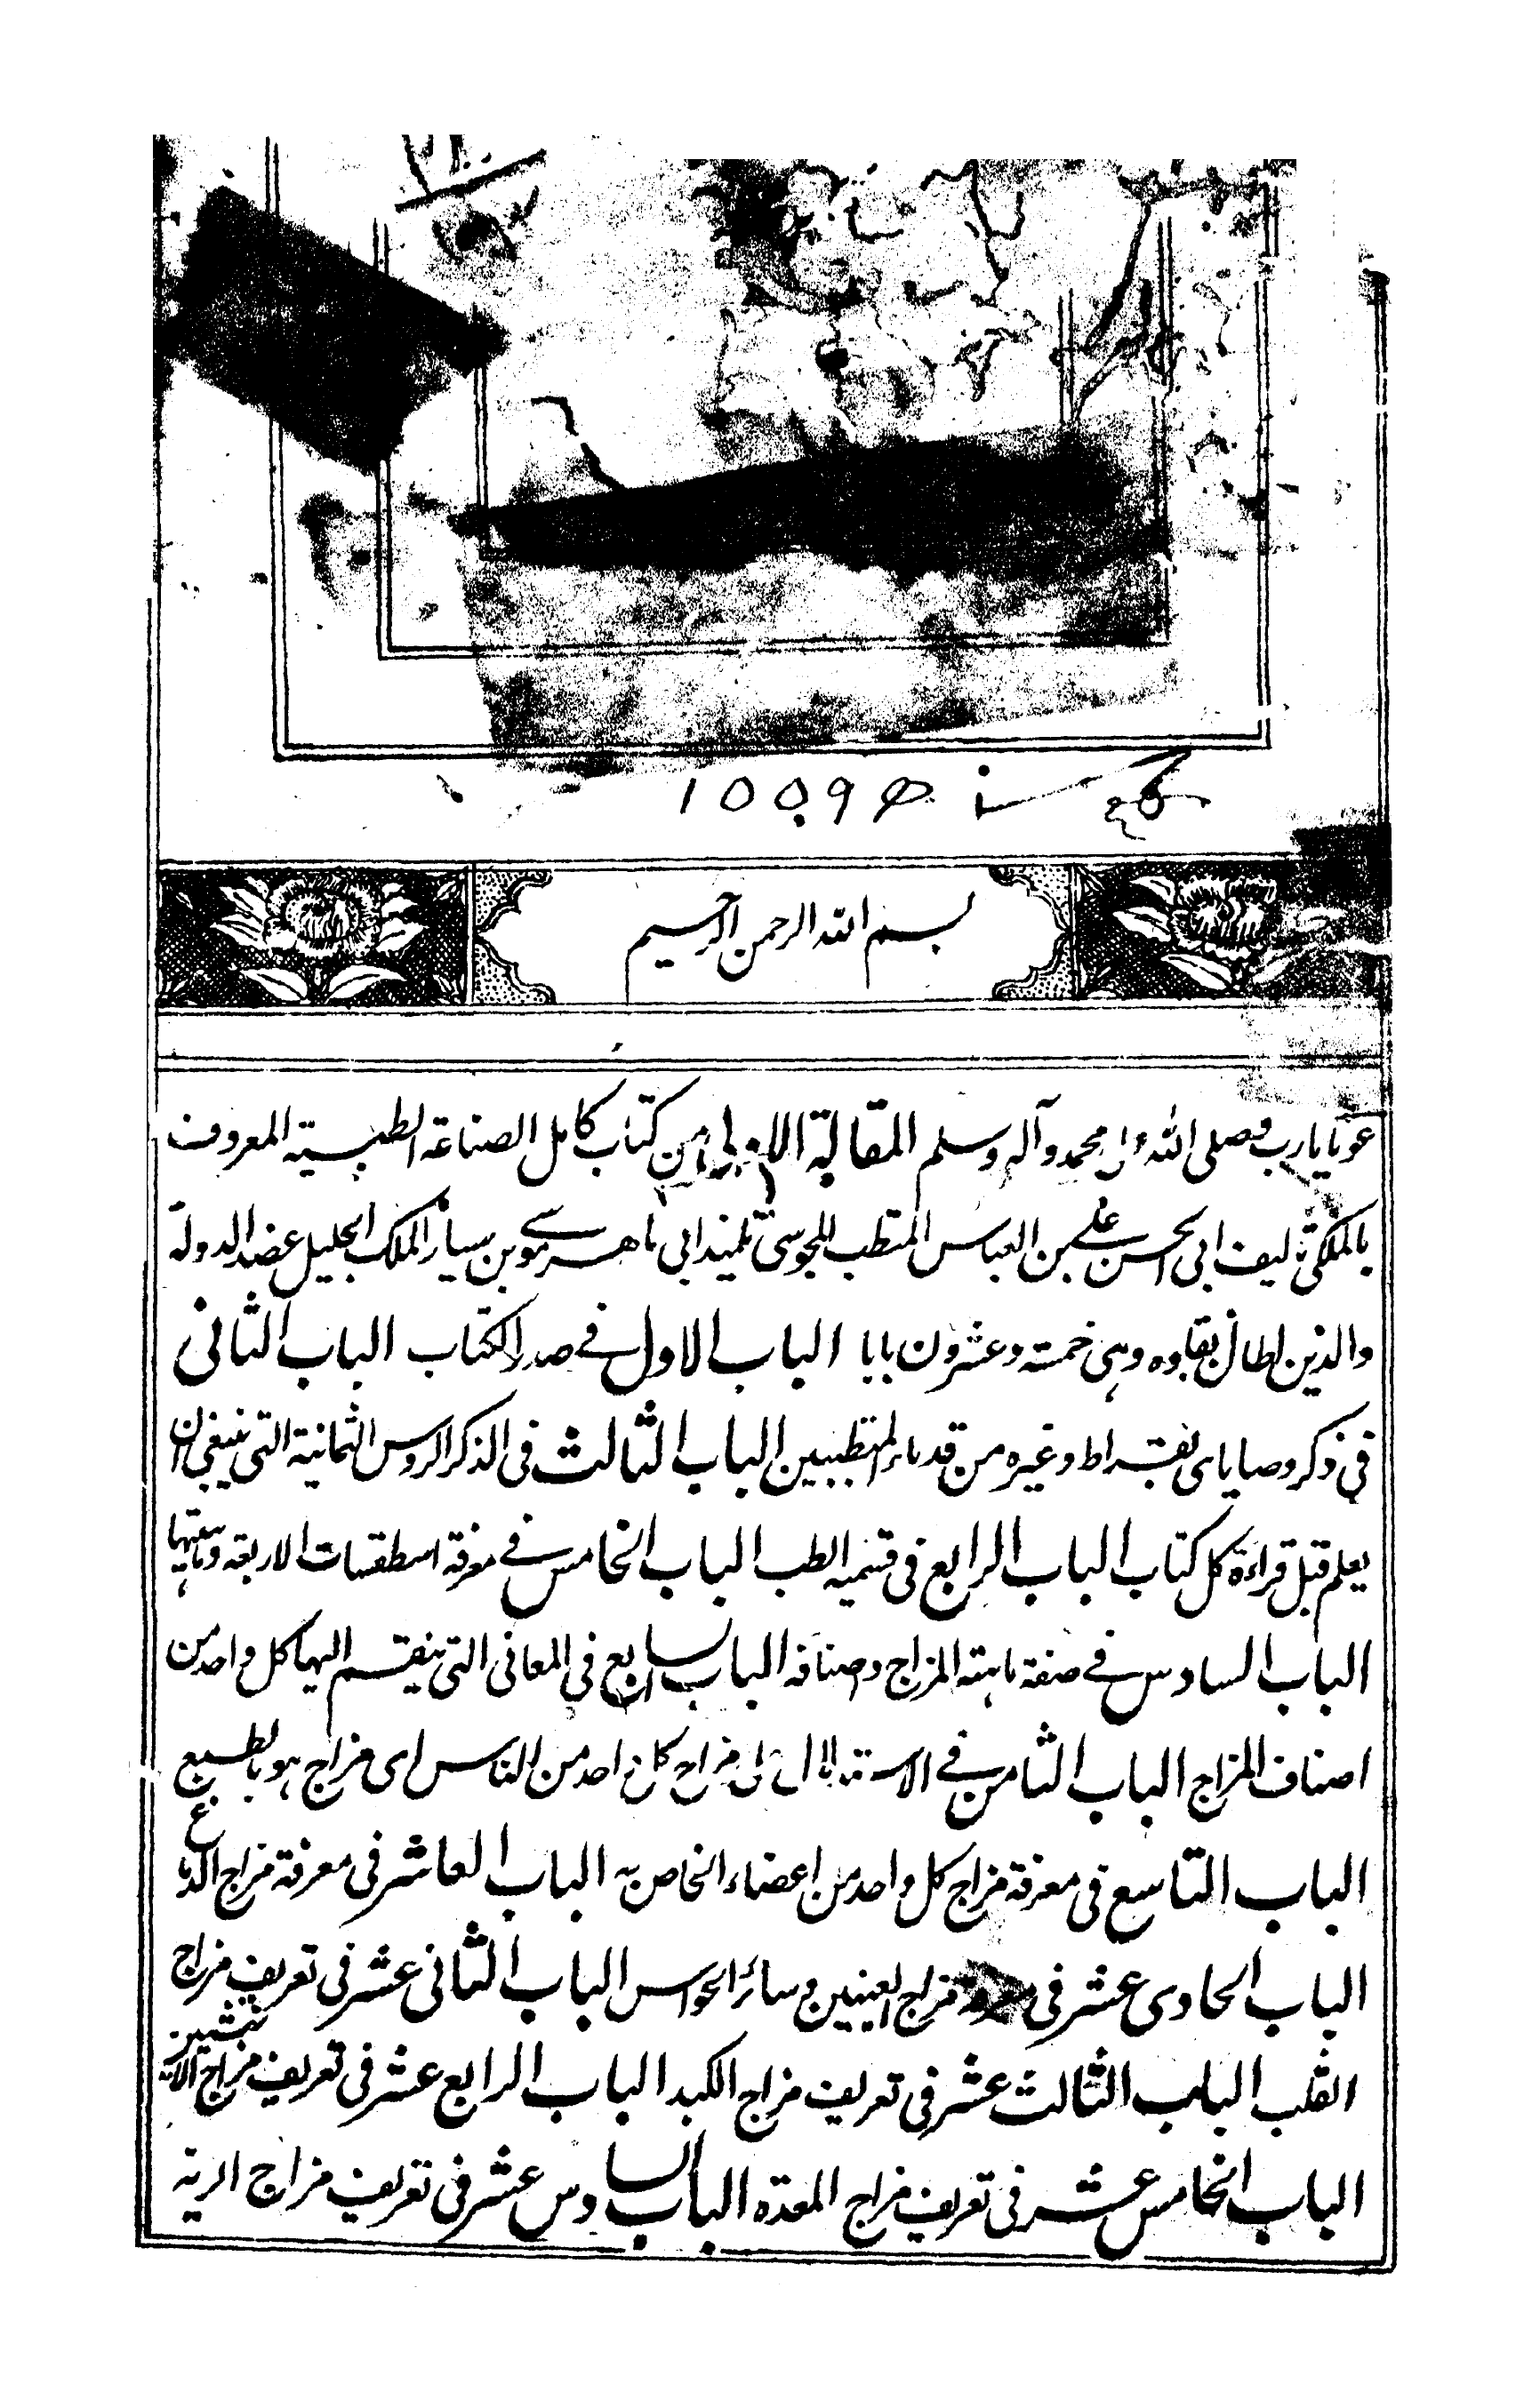 بسم الله الرحمن الرحيم
عونا يا رب وصلى الله على محمد وآله وسلم المقالة الاولى من كتاب كامل الصناعة الطبية المعروف
بالملكى تاليف ابى الحسن على بن العباس المتطبب المجوسى تلميذ ابى ماهر موسى بن سيار الملك الجليل عضد الدولة
والدين اطال بقاوه وهى خمسة وعشرون بابا الباب الاول فى صدر الكتاب الباب الثانى
فى ذكر وصاياى بقراط وغيره من قدماء المتطببين الباب الثالث فى الذكر الروس الثمانية التى ينبغى ان
يعلم قبل قراءة كل كتاب الباب الرابع فى قسمية الطب الباب الخامس فى معرفة اسطقسات الاربعة وماهيتها
الباب السادس فى صفة ماهية المزاج وصنافه الباب السابع فى المعانى التى ينقسم اليها كل واحد من
اصناف المزاج الباب الثامن فى مزاج كل واحد من الناس اى مزاج هو بالطبع
الباب التاسع فى معرفة مزاج كل واحد من اعضاء الخاص به الباب العاشر فى معرفة مزاج الدماغ
الباب الحادى عشر فى مزاج العينين وسائر الحواس الباب الثانى عشر فى تعريف مزاج
القلب الباب الثالث عشر فى تعريف مزاج الكبد الباب الرابع عشر فى تعريف مزاج الانثيين
الباب الخامس عشر فى تعريف مزاج المعدة الباب السادس عشر فى تعريف مزاج الرية